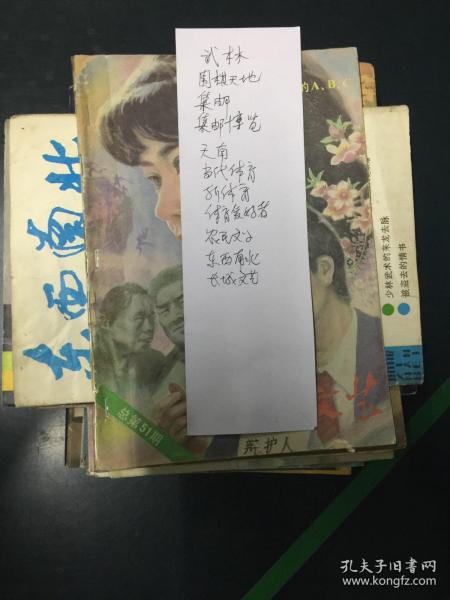 武林
围棋天地
集邮
集邮博览
天南
当代体育
新体育
体育爱好者
农民文学
东西南北
长城文艺
的A.B.C
东西南北
少林武术的来龙去脉
被盗去的情书
总第51期
辩护人
孔夫子旧书网
www.kongfz.com